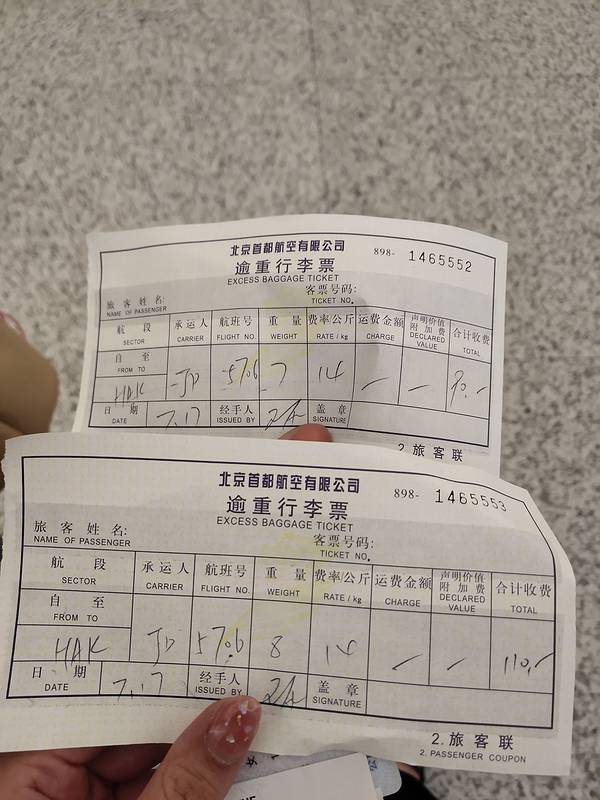 北京首都航空有限公司
898- 1465552
逾重行李票
EXCESS BAGGAGE TICKET
旅客姓名:
NAME OF PASSENGER
客票号码:
TICKET NO.
航段 承运人 航班号 重量 费率/公斤 运费金额 声明价值附加费 合计收费
SECTOR CARRIER FLIGHT NO. WEIGHT RATE / kg CHARGE DECLARED VALUE TOTAL
自 至
FROM TO
HAK JD 5706 7 14 — —
日期 7.17 经手人 盖章
DATE ISSUED BY SIGNATURE
2.旅客联
北京首都航空有限公司
898- 1465553
逾重行李票
EXCESS BAGGAGE TICKET
旅客姓名:
NAME OF PASSENGER
客票号码:
TICKET NO.
航段 承运人 航班号 重量 费率/公斤 运费金额 声明价值附加费 合计收费
SECTOR CARRIER FLIGHT NO. WEIGHT RATE / kg CHARGE DECLARED VALUE TOTAL
自 至
FROM TO
HAK JD 5706 8 14 110.
日期 7.17 经手人 盖章
DATE ISSUED BY SIGNATURE
2.旅客联
2. PASSENGER COUPON